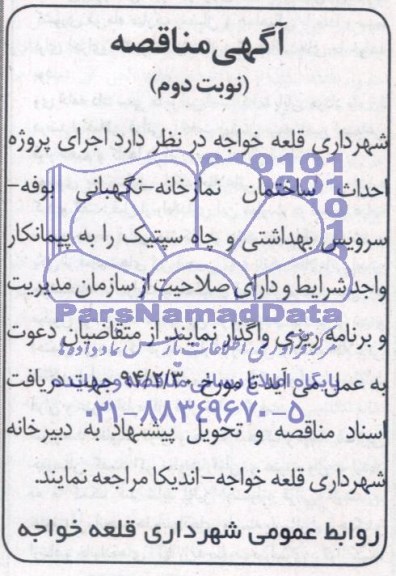 آگهی مناقصه
(نوبت دوم)
شهرداری قلعه خواجه در نظر دارد اجرای پروژه
احداث ساختمان نمازخانه-نگهبانی بوفه-
سرویس بهداشتی و چاه سپتیک را به پیمانکار
واجد شرایط و دارای صلاحیت از سازمان مدیریت
ParsNamadData
و برنامه ریزی واگذار نمایند. از متقاضیان دعوت
به عمل می آید تا مورخ ۹۴/۲/۳۰ جهت دریافت
۰۲۱-۸۸۳۴۹۶۷۰-۵
اسناد مناقصه و تحویل پیشنهاد به دبیرخانه
شهرداری قلعه خواجه-اندیکا مراجعه نمایند.
روابط عمومی شهرداری قلعه خواجه